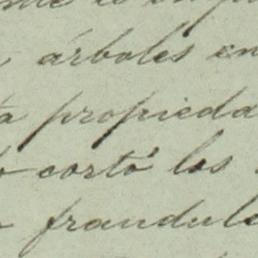 árboles en
propieda
cortó los
fraudule